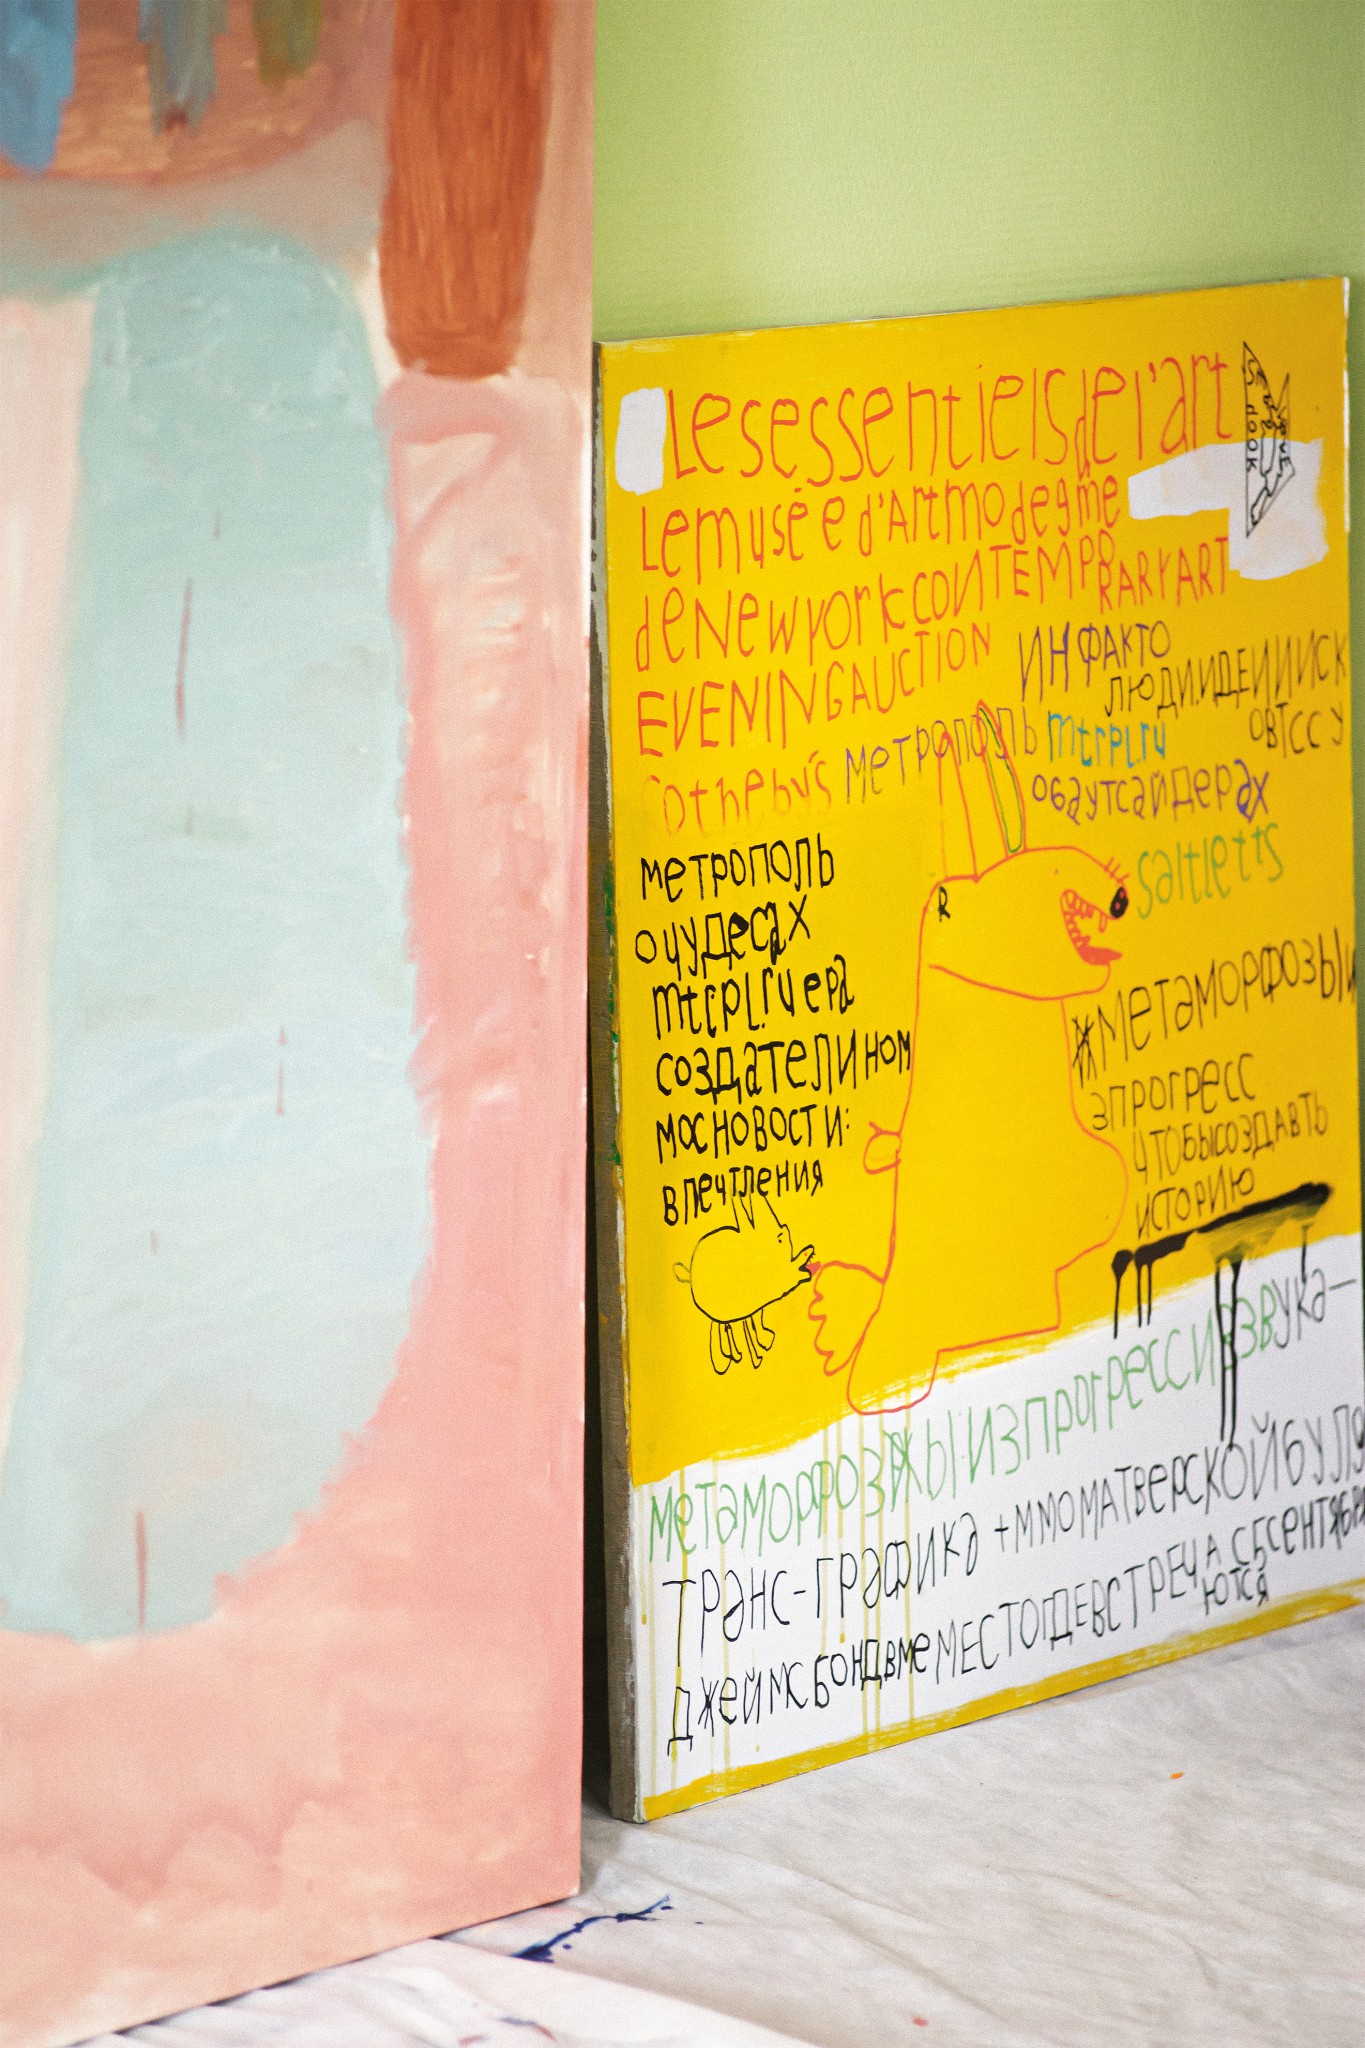 Lesessentielsdel'art
Lemusée d'Artmodegme
deNewyorkCONTEMPO
RARYART
EVENINGAUCTION
ИНФАКТО
ЛЮДИ.ИДЕИИИСК
ОВТССУ
Sotheby's МЕТРОПОЛЬ mtrpl.ru
обаутсайдерах
saltletts
метрополь
очудесах
mtrpl.ru ера
создатели ном
мосновости:
впечтления
R
#МЕТАМОРФОЗЫИ
зпрогресс
чтобысоздавть
историю
метаморфозжыизпрогрессиизвука—
Транс-графика +ММОМАТВЕРСКОЙБУЛ
Джеймсбондвме МЕСТОГДЕВСТРЕЧА С5СЕНТЯБРЯ
ЮТСЯ